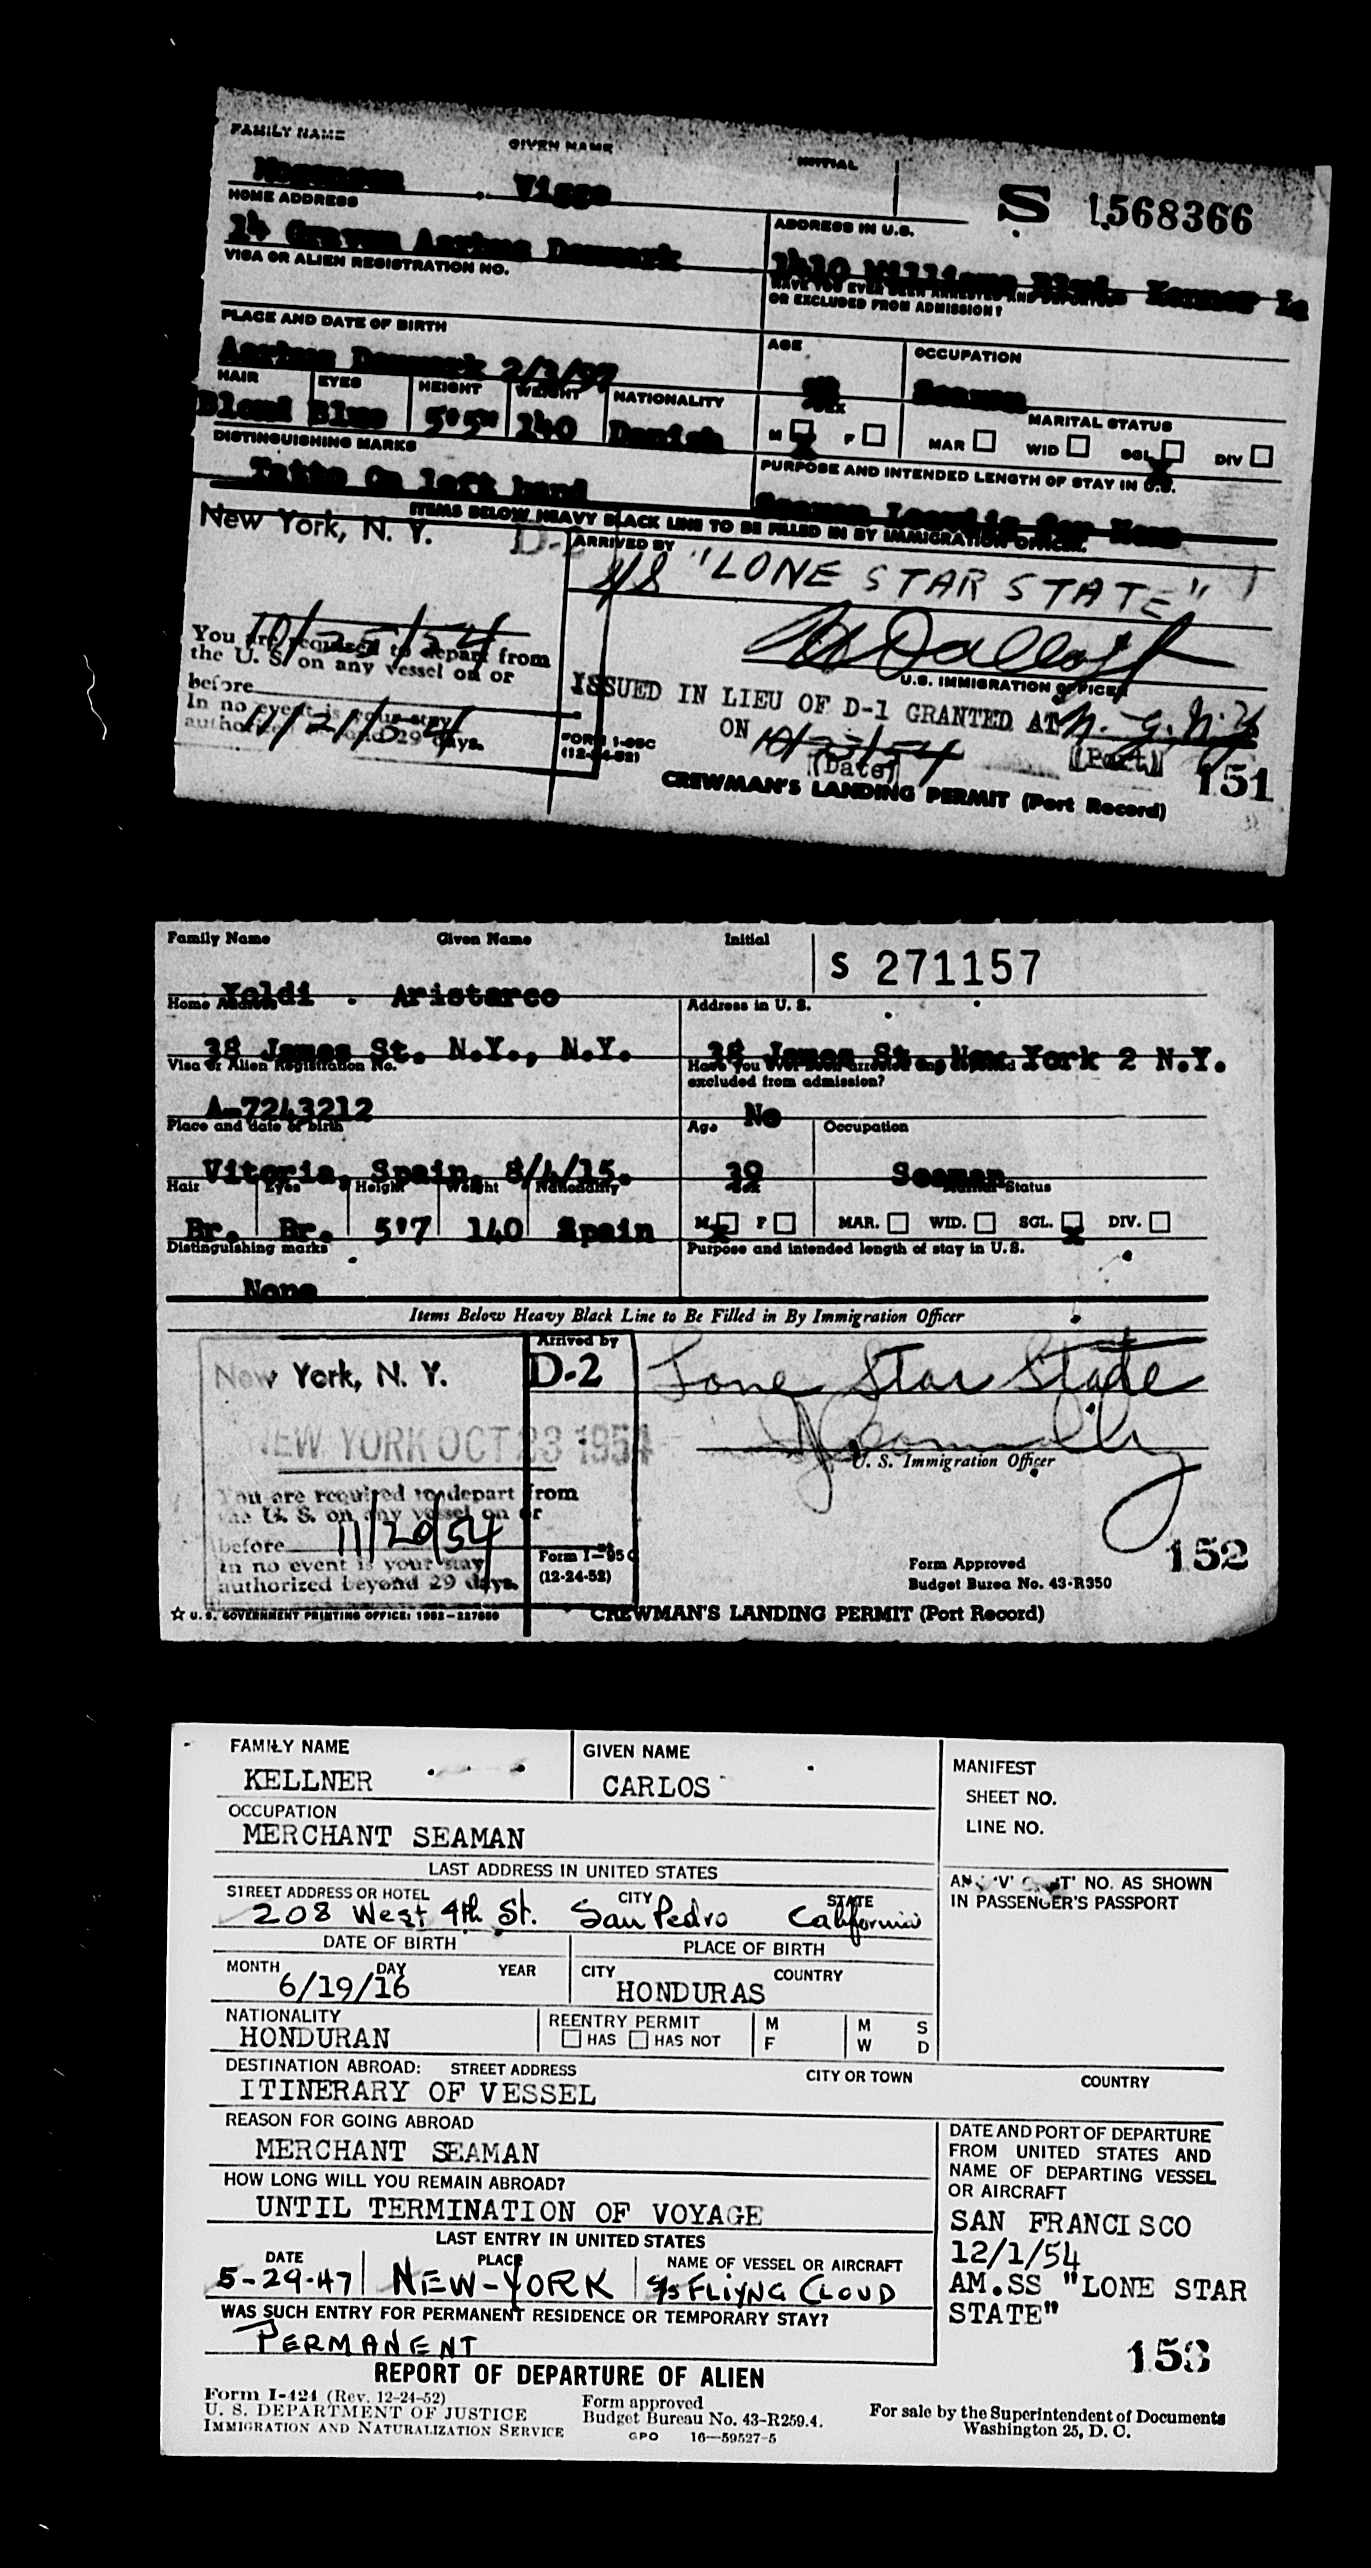 FAMILY NAME GIVEN NAME INITIAL
Viggo
S 1568366
HOME ADDRESS ADDRESS IN U.S.
14 Denmark 1410 Williams Blvd. Kenner La
VISA OR ALIEN REGISTRATION NO. HAVE YOU EVER BEEN ARRESTED AND DEPORTED
OR EXCLUDED FROM ADMISSION?
PLACE AND DATE OF BIRTH AGE OCCUPATION
Aarhus Denmark 2/3/97 Seaman
HAIR EYES HEIGHT WEIGHT NATIONALITY SEX MARITAL STATUS
Blond Blue 5'5" 140 Danish M F MAR WID SGL DIV
DISTINGUISHING MARKS PURPOSE AND INTENDED LENGTH OF STAY IN U.S.
Tatto On left hand Seaman
ITEMS BELOW HEAVY BLACK LINE TO BE FILLED IN BY IMMIGRATION OFFICER.
New York, N. Y. ARRIVED BY
S/S "LONE STAR STATE"
10/25/54
You are required to depart from
the U. S. on any vessel on or
before 11/21/54
In no event is your stay
authorized beyond 29 days.
U.S. IMMIGRATION OFFICER
ISSUED IN LIEU OF D-1 GRANTED AT
ON (Date) (Port)
FORM I-95C
(12-24-52)
151
CREWMAN'S LANDING PERMIT (Port Record)
Family Name Given Name Initial
Yoldi . Aristarco
S 271157
Home Address Address in U. S.
38 James St. N.Y., N.Y. 38 James St., New York 2 N.Y.
Visa or Alien Registration No. Have you ever been arrested and deported or
excluded from admission?
A-7243212 No
Place and date of birth Age Occupation
Vitoria, Spain, 8/4/15. 39 Seaman
Hair Eyes Height Weight Nationality Sex Marital Status
Br. Br. 5'7 140 Spain M F MAR. WID. SGL. DIV.
Distinguishing marks Purpose and intended length of stay in U.S.
None
Items Below Heavy Black Line to Be Filled in By Immigration Officer
Arrived by
New York, N. Y. D-2 Lone Star State
NEW YORK OCT 23 1954
U. S. Immigration Officer
You are required to depart from
the U. S. on any vessel on or
before 11/20/54
In no event is your stay
authorized beyond 29 days.
Form I-95C
(12-24-52)
Form Approved
Budget Bureau No. 43-R350
152
☆ U. S. GOVERNMENT PRINTING OFFICE: 1952-227650 CREWMAN'S LANDING PERMIT (Port Record)
FAMILY NAME GIVEN NAME
KELLNER CARLOS
MANIFEST
SHEET NO.
LINE NO.
OCCUPATION
MERCHANT SEAMAN
LAST ADDRESS IN UNITED STATES
'V' 'T' NO. AS SHOWN
IN PASSENGER'S PASSPORT
STREET ADDRESS OR HOTEL CITY STATE
208 West 4th St. San Pedro California
DATE OF BIRTH PLACE OF BIRTH
MONTH DAY YEAR CITY COUNTRY
6/19/16 HONDURAS
NATIONALITY REENTRY PERMIT M M S
HONDURAN HAS HAS NOT F W D
DESTINATION ABROAD: STREET ADDRESS CITY OR TOWN COUNTRY
ITINERARY OF VESSEL
REASON FOR GOING ABROAD
MERCHANT SEAMAN
DATE AND PORT OF DEPARTURE
FROM UNITED STATES AND
NAME OF DEPARTING VESSEL
OR AIRCRAFT
HOW LONG WILL YOU REMAIN ABROAD?
UNTIL TERMINATION OF VOYAGE
SAN FRANCISCO
12/1/54
AM.SS "LONE STAR
STATE"
LAST ENTRY IN UNITED STATES
DATE PLACE NAME OF VESSEL OR AIRCRAFT
5-29-47 NEW-YORK S/S FLIYNG CLOUD
WAS SUCH ENTRY FOR PERMANENT RESIDENCE OR TEMPORARY STAY?
PERMANENT
153
REPORT OF DEPARTURE OF ALIEN
Form I-424 (Rev. 12-24-52)
U. S. DEPARTMENT OF JUSTICE
IMMIGRATION AND NATURALIZATION SERVICE
Form approved
Budget Bureau No. 43-R259.4.
GPO 16—59527-5
For sale by the Superintendent of Documents
Washington 25, D. C.